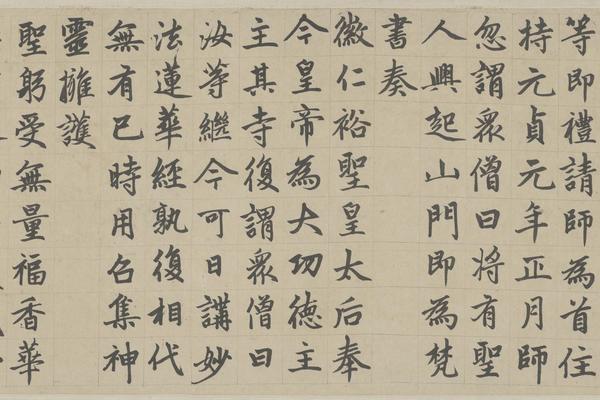 等即禮請師為首住
持元貞元年正月師
忽謂眾僧曰將有聖
人興起山門即為梵
書奏
徽仁裕聖皇太后奉
今皇帝為大功德主
主其寺復謂眾僧曰
汝等繼今可日講妙
法蓮華經孰復相代
無有已時用召集神
靈擁護
聖躬受無量福香華